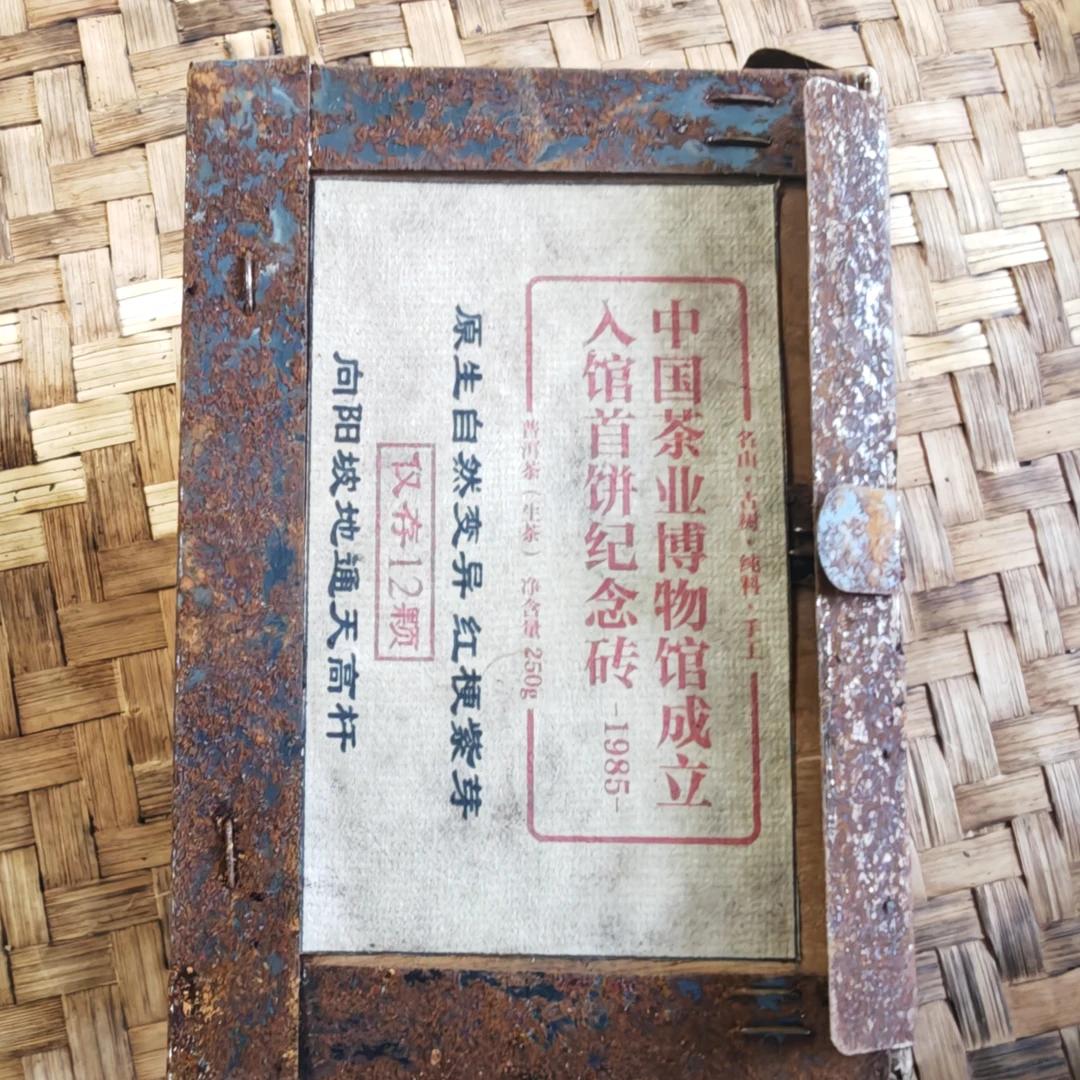 名山·古树·纯料·手工
中国茶业博物馆成立
入馆首饼纪念砖 -1985-
普洱茶（生茶） 净含量 250g
原生自然变异 红梗紫芽
仅存12颗
向阳坡地通天高杆